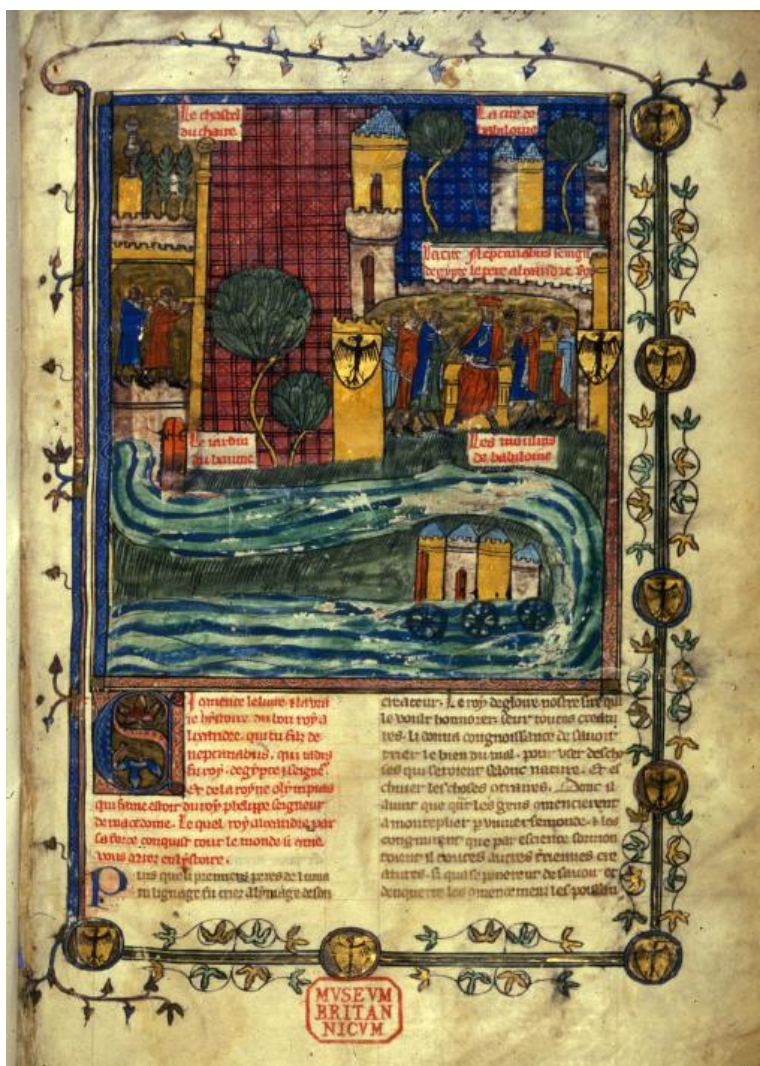 Le chastel
du chaire.
La cite de
babiloine
La cite Neptanabus seingn
degypte le pere alixandre roy
Le jardin
du baume
Les moulins
de babiloine
Ci comence le livre & la vra
ie hystoire du bon roy a
lixandre. qui fu filz de
neptanabus. qui jadis
fu roy. degypte & seigne
et de la royne olympias
qui fame estoit du roy phelippe seigneur
de macedoine. Le quel roy alixandre par
sa force conquist tout le monde si come
vous orrez en lystoire.
Puis que li premiers peres de luma
in lignage fu criez a lymage de son
createur. Le roy de gloire nostre sire qui
le voult honnorer seur toutes creatu
res. li donna congnoissance de savoir
trier le bien du mal. pour user des cho
ses qui servient selonc nature. et es
chiver les choses
avint que que les gens comencierent
a monteplier p le
par escience
toutes autres terriennes cre
atures. si
les
MVSEVM
BRITAN
NICVM